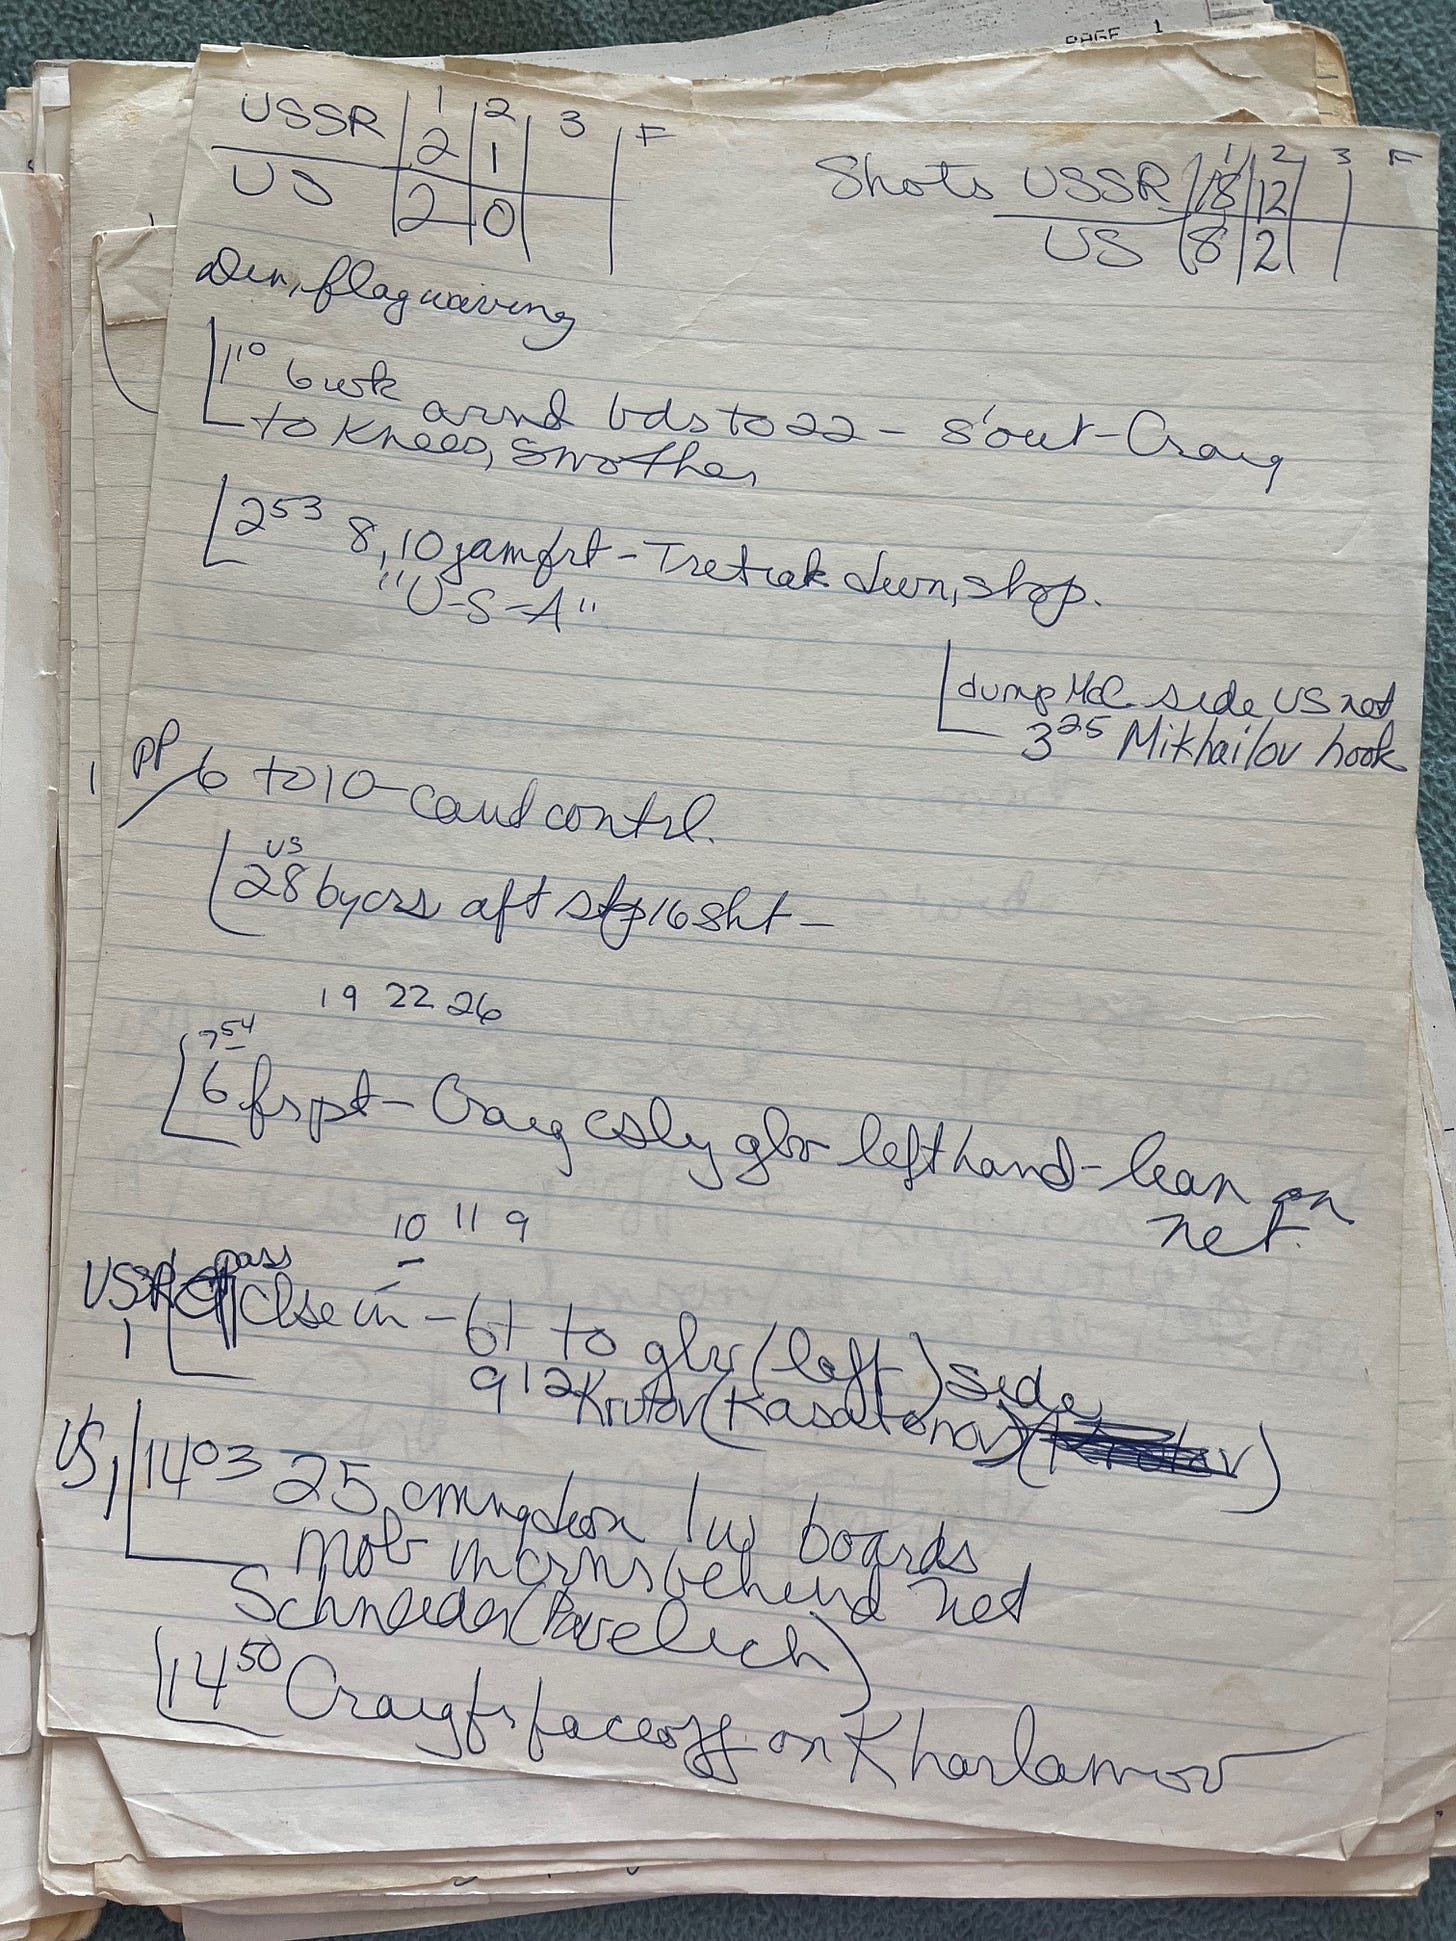 PAGE 1
1 2 3 F
USSR 2 1
US 2 0
1 2 3 F
Shots USSR 18 12
US 8 2
Din, flag waiving
1 10 6 wk arnd bds to 22 - s'out - Craig
to knees, smother
2 53 8, 10 jam frt - Tretiak down, stop.
"U-S-A"
dump McC. side US net
3 25 Mikhailov hook
1 PP
6 to 10 - cant contrl.
US
28 by crs aft stp 16 sht -
19 22 26
7 54
6 fr pt - Craig esly glv left hand - lean on
net.
10 11 9
pass
USSR clse in - 6t to glv (left) side
1 9 12 Krutov (Kasatonov)
US 1 14 03 25 cmng down lw boards
mob in crnr behind net
Schneider (Pavelich)
14 50 Craig frs faceoff on Kharlamov